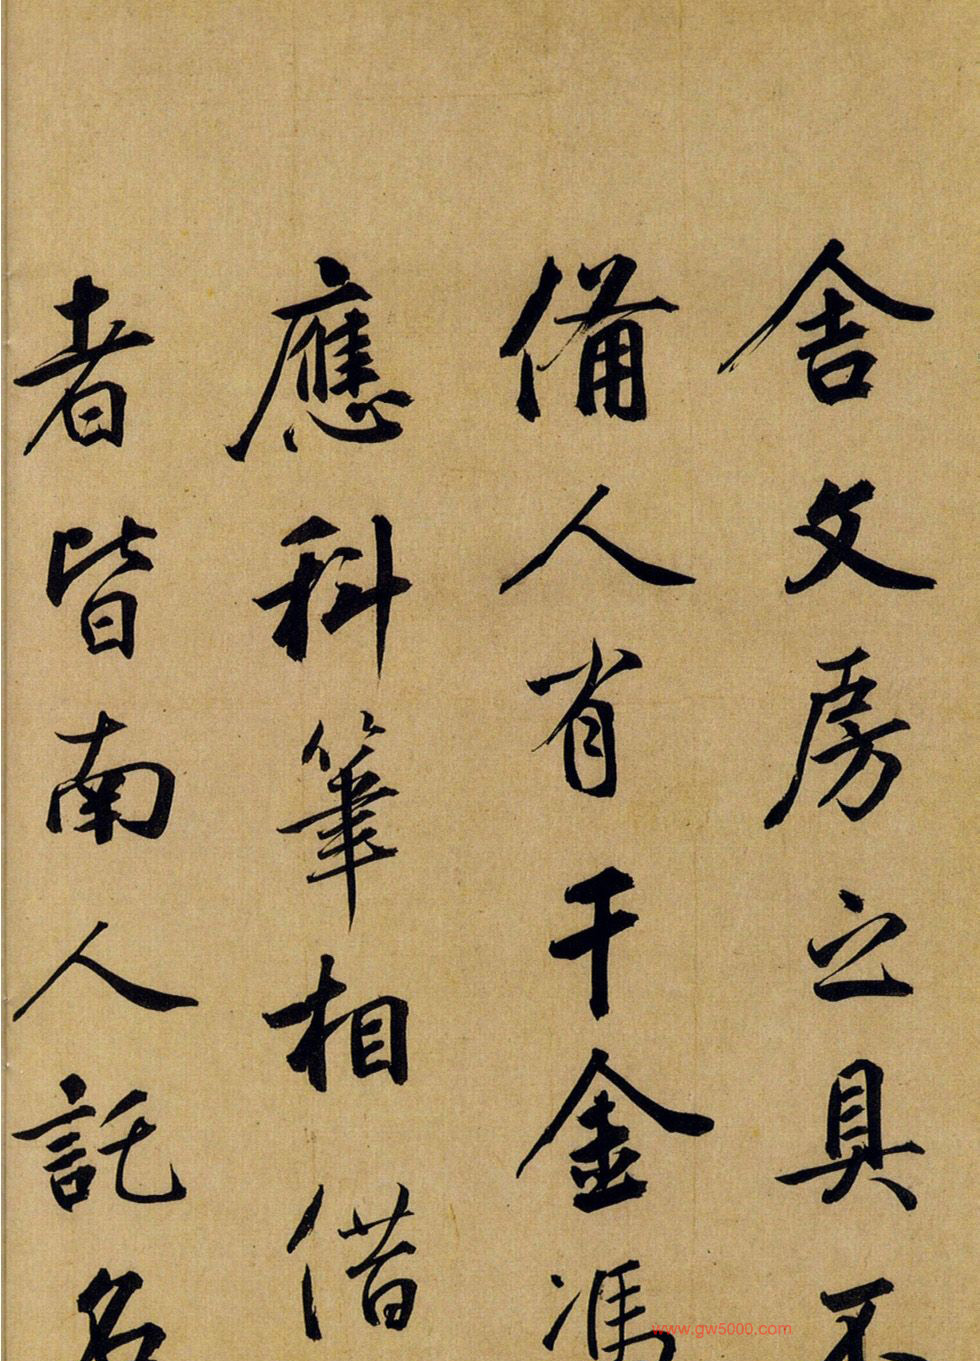 舍文房之具不
備人省千金馮
應科筆相借
者皆南人託名
www.gw5000.com